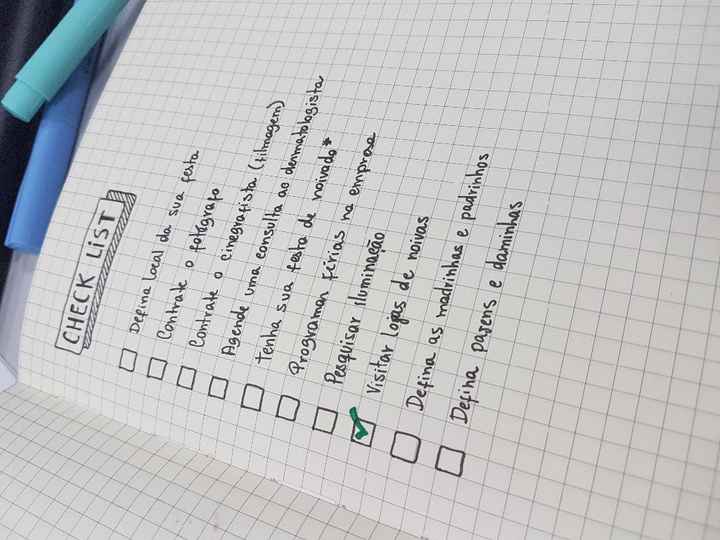 CHECK LIST
Defina local da sua festa
Contrate o fotógrafo
Contrate o cinegrafista (filmagem)
Agende uma consulta ao dermatologista
Tenha sua festa de noivado *
Programar férias na empresa
Pesquisar iluminação
Visitar lojas de noivas
Defina as madrinhas e padrinhos
Defina pajens e daminhas